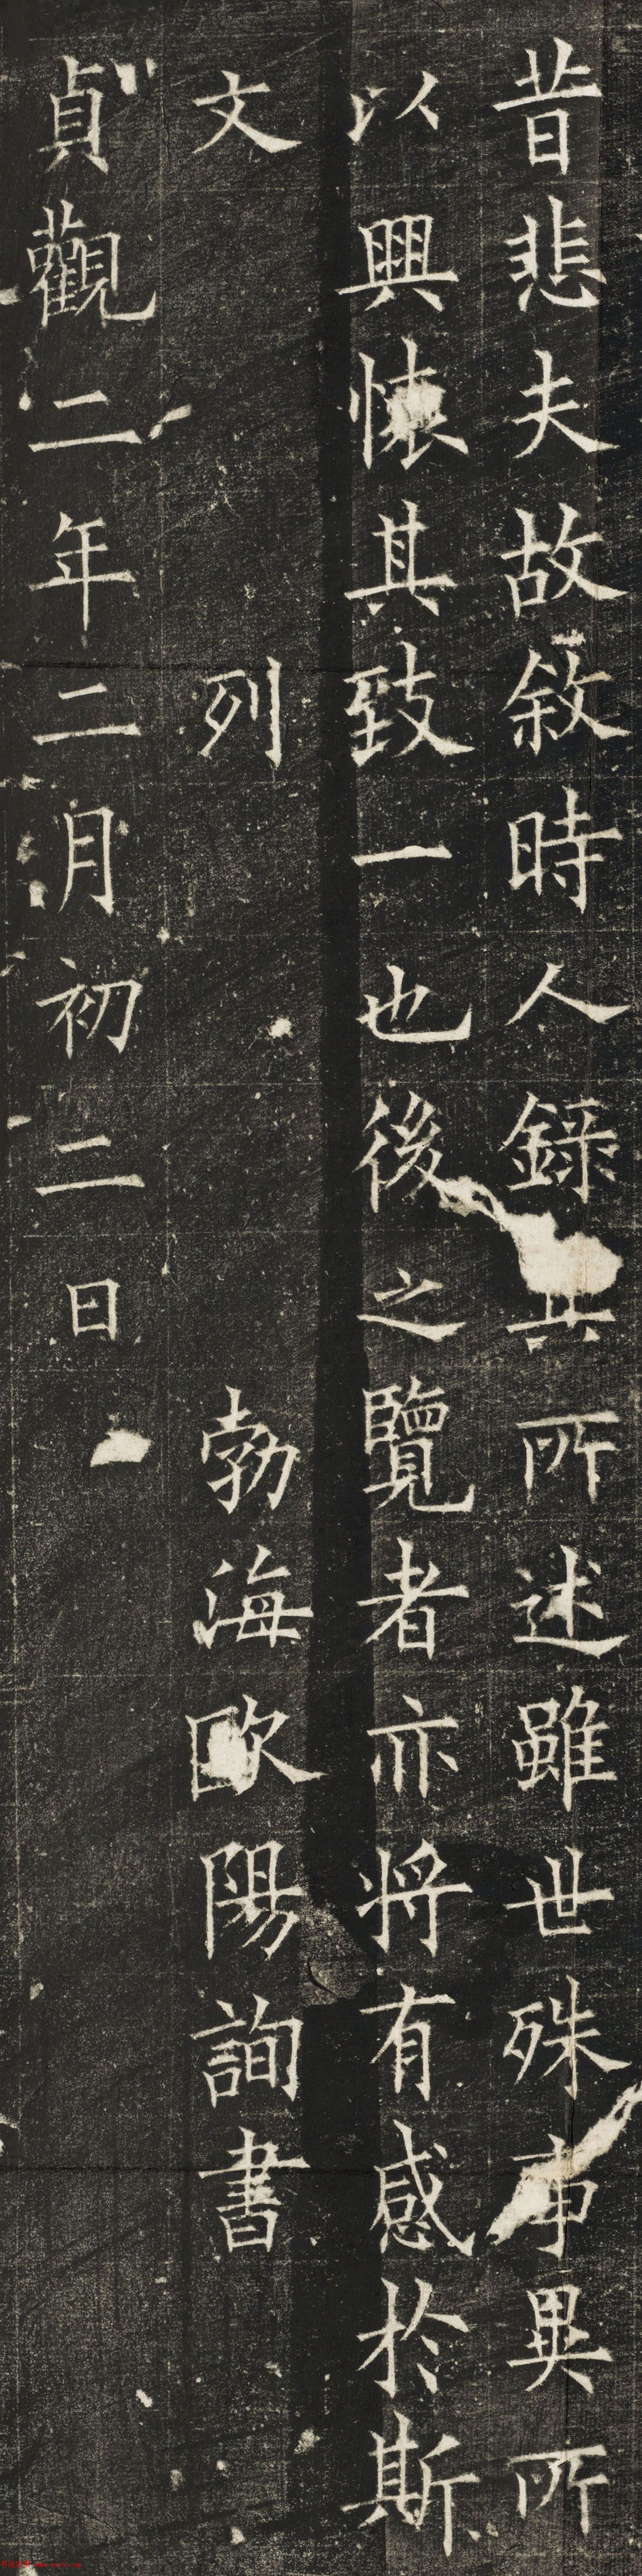 昔悲夫故敘時人錄其所述雖世殊事異所
以興懷其致一也後之覽者亦将有感於斯
文　列　勃海歐陽詢書
貞觀二年二月初二日